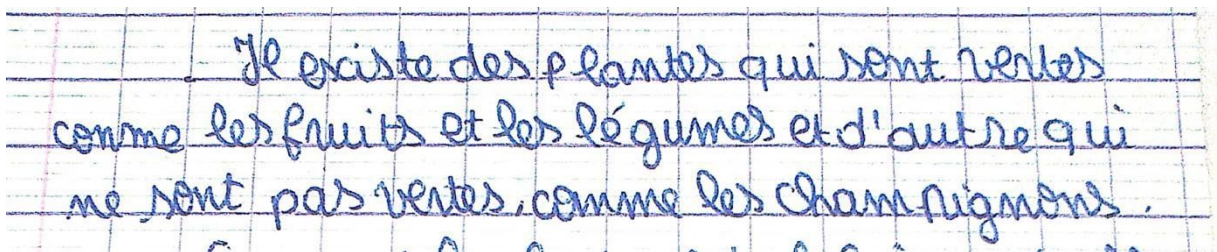 Il existe des plantes qui sont vertes
comme les fruits et les légumes et d'autre qui
ne sont pas vertes, comme les champignons.